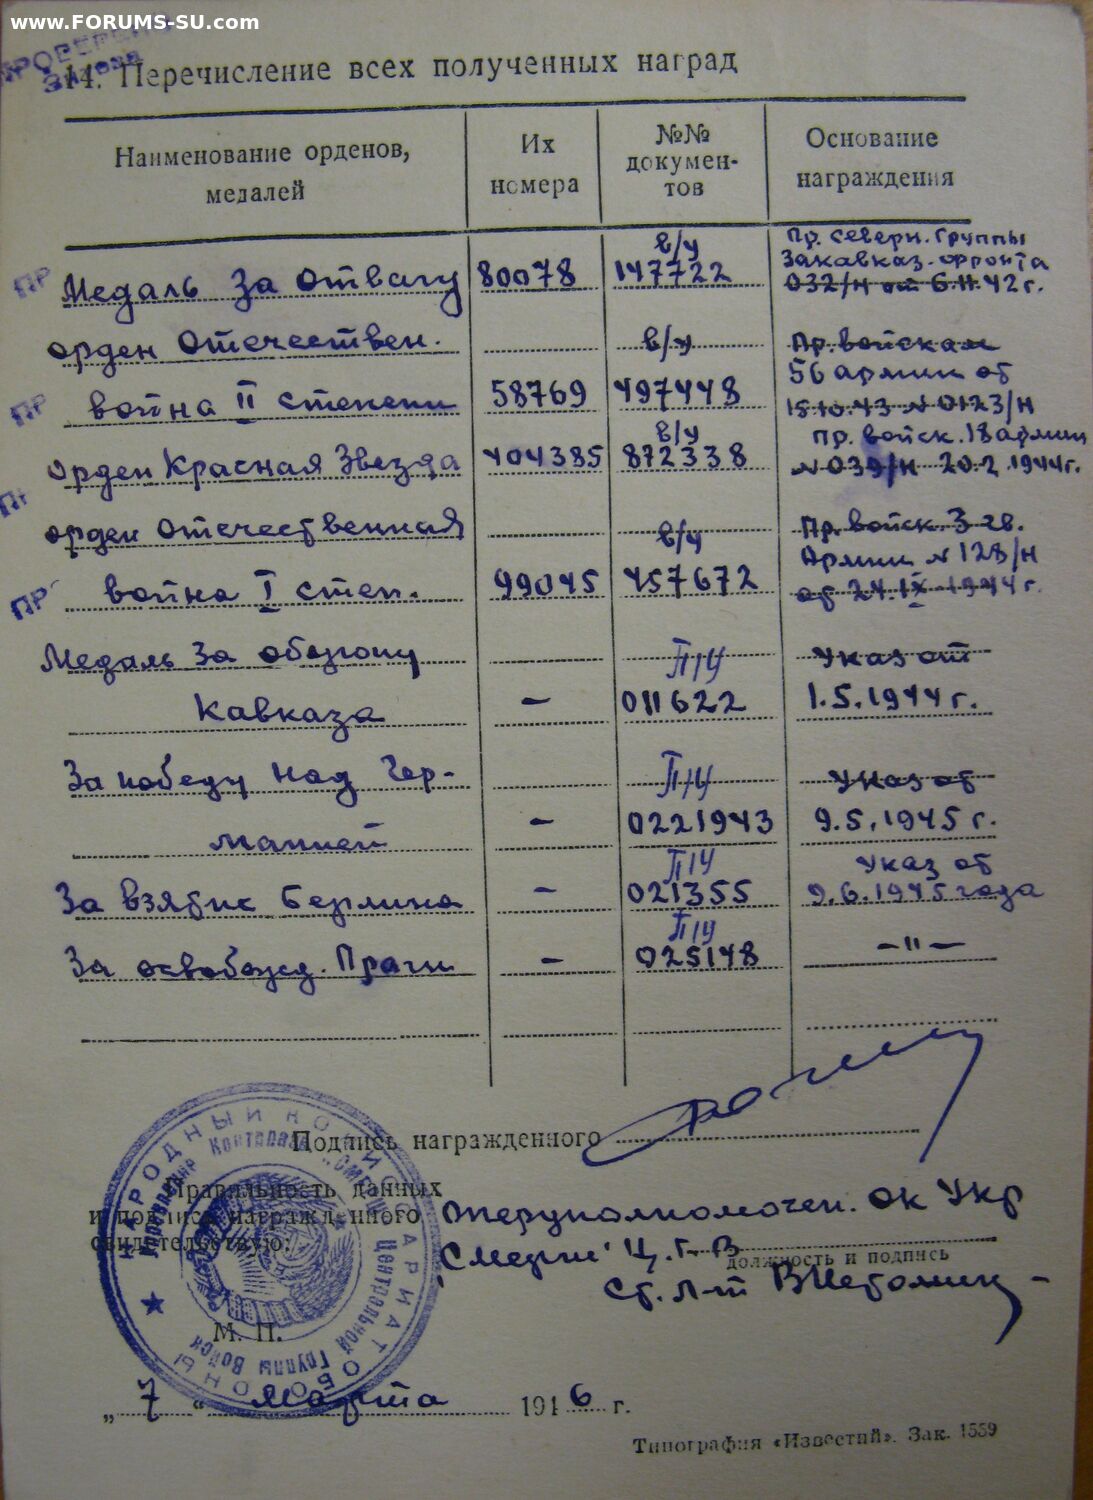 www.FORUMS-SU.com
ПРОВЕРЕНО
14. Перечисление всех полученных наград
Наименование орденов, медалей
Их номера
№№ докумен-тов
Основание награждения
Пр. северн. группы
в/у
Закавказ. фронта
Медаль За отвагу 80078 147722 032/н от 6.11.42 г.
орден Отечествен. в/у Пр. войскам
56 армии от
война II степени 58769 497448 15.10.43 № 0123/н
в/у пр. войск. 18 армии
орден Красная Звезда 404385 872338 № 039/н 20.2.1944г.
орден Отечественная в/у Пр. войск. 3 гв.
Армии № 128/н
война I степ. 99045 457672 от 24.IX.1944г.
Медаль За оборону П/У Указ от
Кавказа – 011622 1.5.1944 г.
За победу над Гер- П/У Указ от
манией – 0221943 9.5.1945 г.
П/У Указ от
За взятие Берлина – 021355 9.6.1945 года
П/У
За освобожд. Праги – 025148 –"–
Подпись награжденного
Правильность данных
и подписи награжденного
свидетельствую:
Оперуполномочен. ОК Укр
"Смерш" Ц.Г.В
должность и подпись
Ст. л-т
М. П.
НАРОДНЫЙ КОМИССАРИАТ ОБОРОНЫ
Центральной Группы Войск
„7“ марта 1946 г.
Типография «Известий». Зак. 1559
ПР
ПР
ПР
ПР